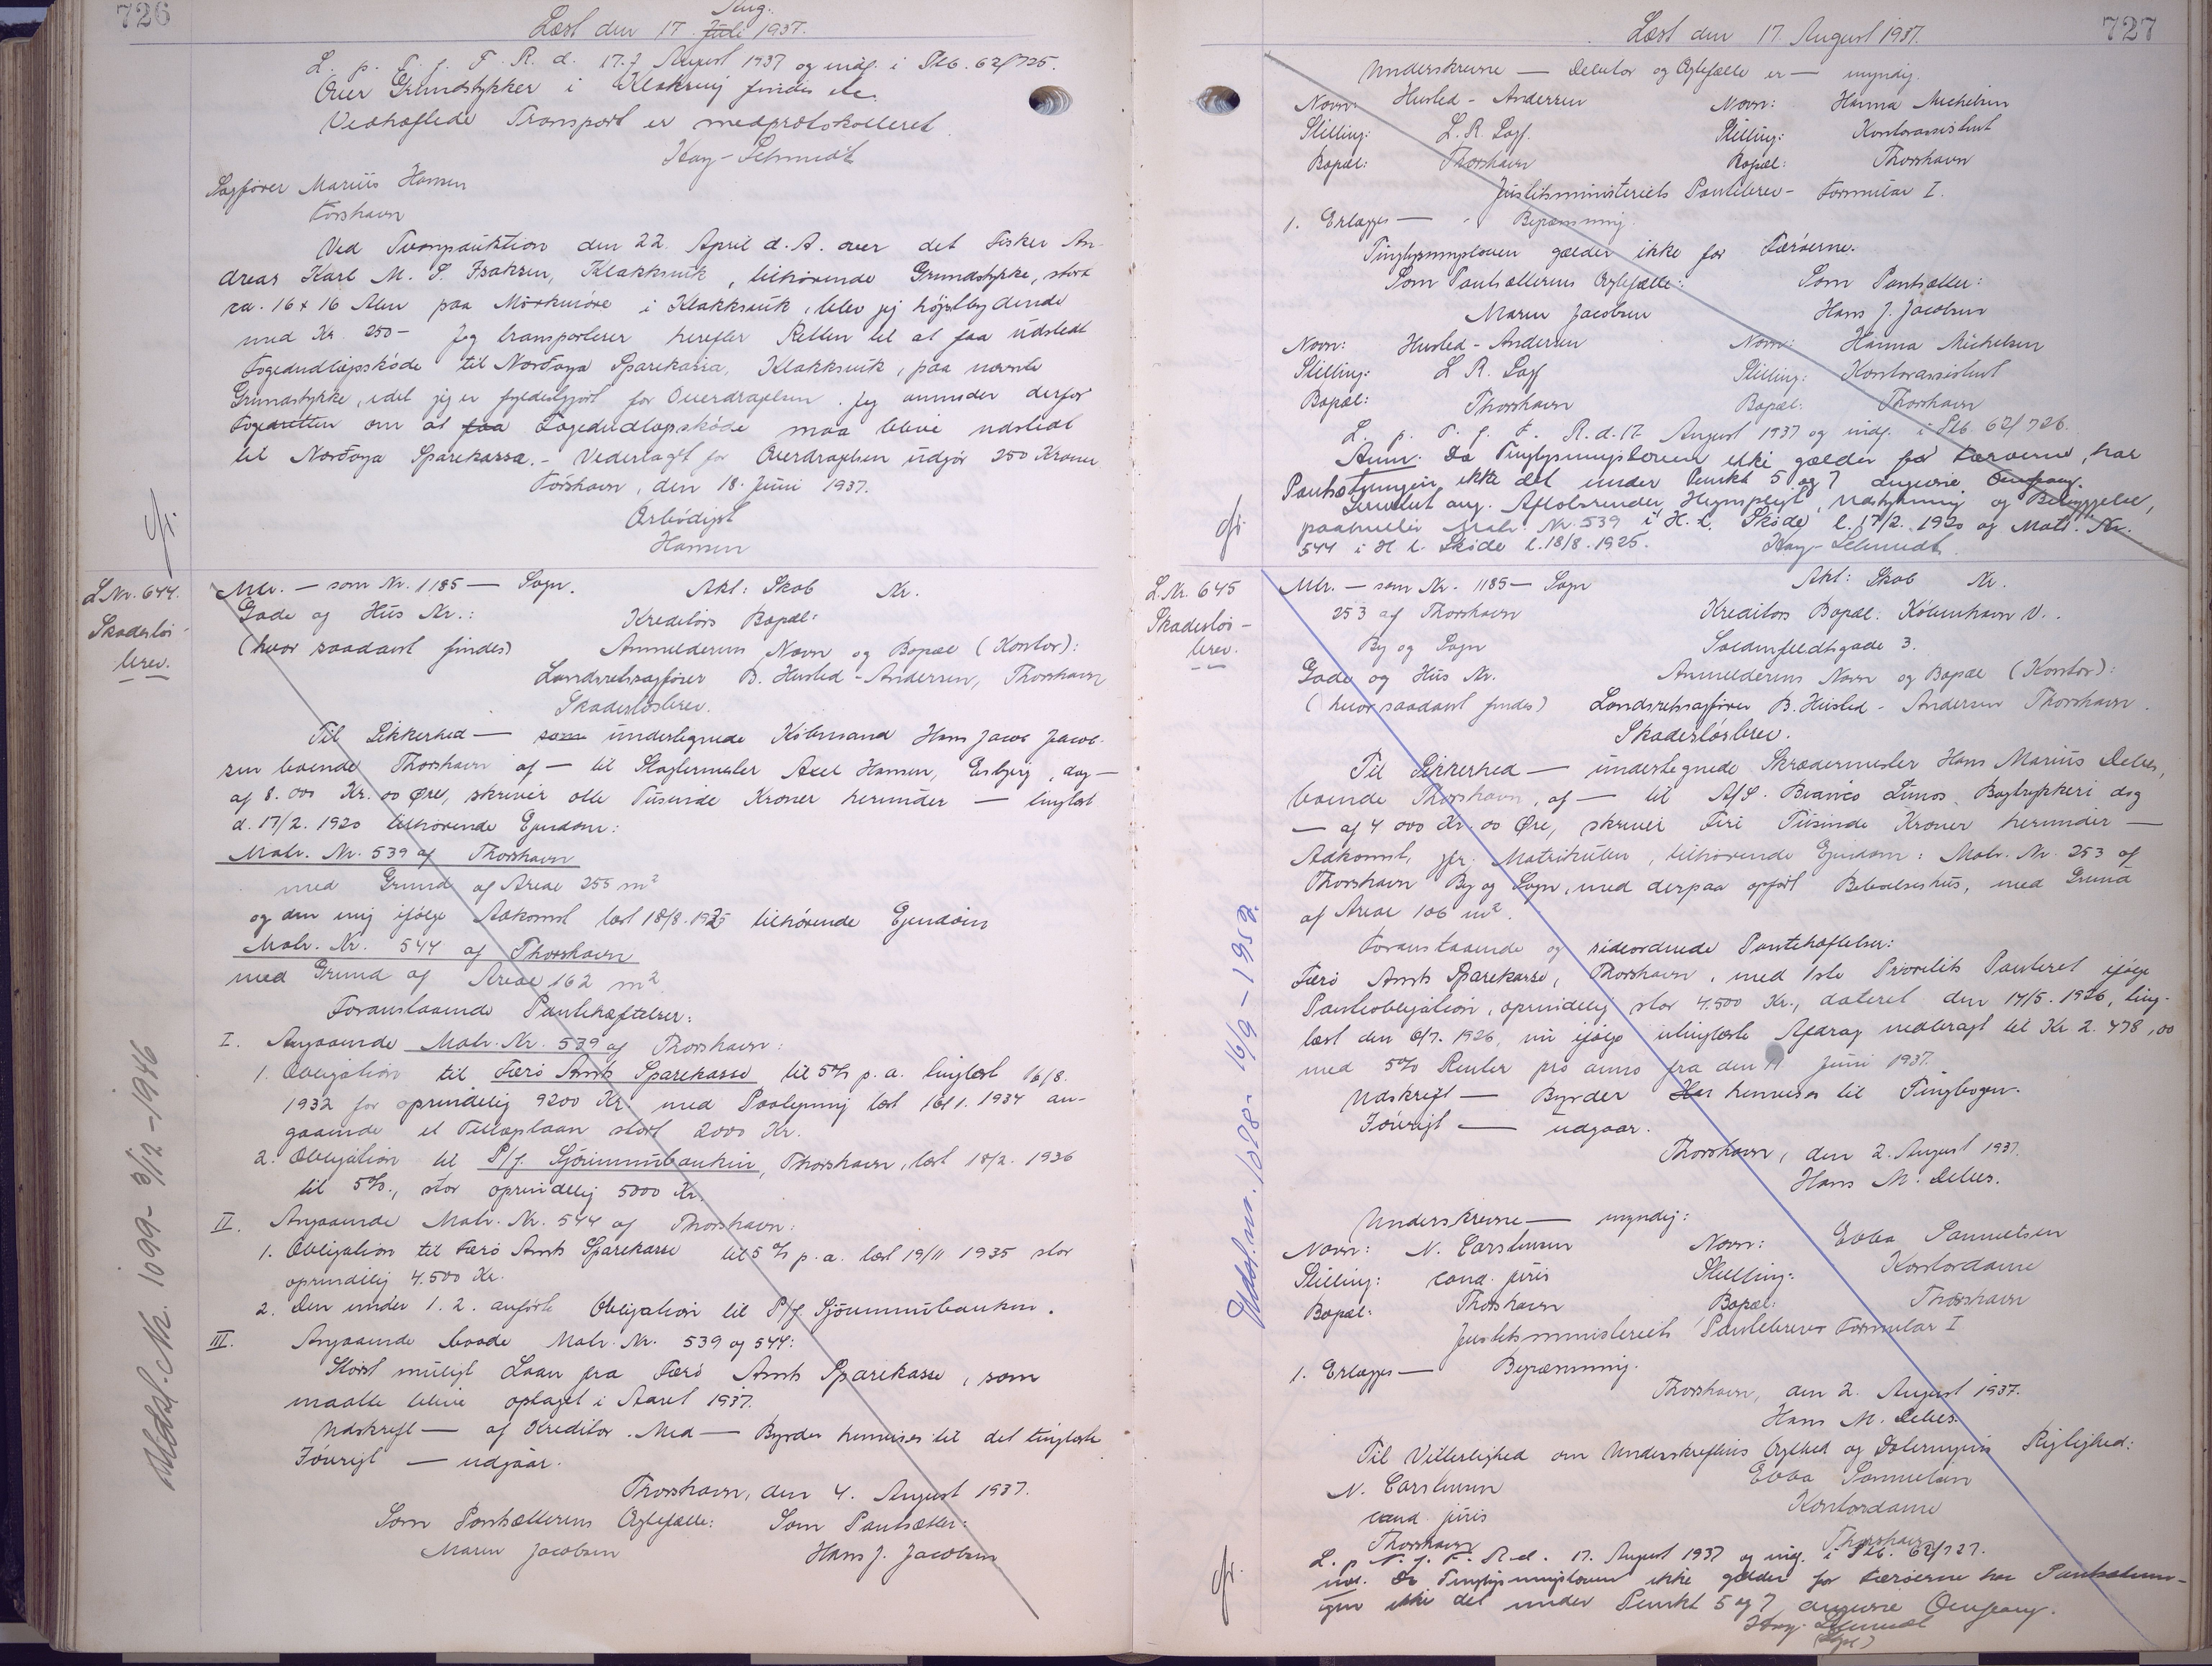 726
Læst den 17. Juli Aug. 1937.
L. p. T. f. F. R. d. 17. August 1937 og indf. i Ptb. 62/725.
Over Grundstykker i Klaksvig findes ele.
Vedhæftede Transport er medprotokolleret.
Kay-Schmidt
Sagfører Marius Hansen
Torshavn
Ved Tvangsauktion den 22. April d. A. over det Fisker An-
dreas Karl M. S. Isaksen, Klakksvik, tilhørende Grundstykke, stort
ca. 16 x 16 Alen paa Mørkmóre i Klakksvik, blev jeg højstbydende
med Kr. 250 - Jeg transporterer herefter Retten til at faa udstedt
Fogedudlægsskøde til Nordoya Sparikassa, Klakksvik, paa nævnte
Grundstykke, idet jeg er fyldestgjort for Overdragelsen. Jeg anmoder derfor
Fogedretten om at faa Fogedudlægsskøde maa blive udstedt
til Nordoya Sparikassa. - Vederlaget for Overdragelsen udgør 250 Kroner
Torshavn, den 18. Juni 1937.
Ærbødigst
Hansen
L. Nr. 644.
Skadesløs-
brev.
Mtr. — som Nr. 1185 — Sogn. Akt: Skab Nr.
Gade og Hus Nr.: Kreditors Bopæl:
(hvor saadant findes) Anmelderens Navn og Bopæl (Kontor):
Landsretssagfører B. Husted-Andersen, Thorshavn
Skadesløsbrev.
Til Sikkerhed — som undertegnede Købmand Hans Jacob Jacob-
sen boende Thorshavn af — til Slagtermester Axel Hansen, Esbjerg, dog —
af 8.000 Kr. 00 Øre, skriver otte Tusinde Kroner herunder — tinglæst
d. 17/2. 1920 tilhørende Ejendom:
Matr. Nr. 539 af Thorshavn
med Grund af Areal 255 m²
og den mig ifølge Adkomst læst 18/8. 1925 tilhørende Ejendom
Matr. Nr. 544 af Thorshavn
med Grund af Areal 162 m²
Foranstaaende Pantehæftelser:
I. Angaaende Matr. Nr. 539 af Thorshavn:
1. Obligation til Færø Amts Sparekasse til 5% p. a. tinglæst 16/8.
1932 for oprindelig 9200 Kr. med Paategning læst 16/1. 1934 an-
gaaende et Tillægslaan stort 2000 Kr.
2. Obligation til P/f. Sjóvinnubankin, Thorshavn, læst 18/2. 1936
til 5%, stor oprindelig 5000 Kr.
II. Angaaende Matr. Nr. 544 af Thorshavn:
1. Obligation til Færø Amts Sparekasse til 5% p. a. læst 19/11 1935 stor
oprindelig 4.500 Kr.
2. Den under 1. 2. anførte Obligation til P/f Sjóvinnubankin.
III. Angaaende baade Matr. Nr. 539 og 544:
Størst muligt Laan fra Færø Amts Sparekasse, som
maatte blive optaget i Aaret 1937.
Udskrift — af Kreditor. Med — Byrder henvises til det tinglæste
Iøvrigt — udgaar.
Thorshavn, den 4. August 1937.
Som Pantsætterens Ægtefælle: Som Pantsætter:
Maren Jacobsen Hans J. Jacobsen
Udslt. Nr. 1099 - 3/12 - 1946
727
Læst den 17. August 1937.
Underskrevne — Debitor og Ægtefælle er — myndig.
Navn: Husted-Andersen Navn: Hanna Michelsen
Stilling: L. R. Sagf. Stilling: Kontorassistent
Bopæl: Thorshavn Bopæl: Thorshavn
Justitsministeriets Pantebrev - Formular I.
1. Erlægges — Begrænsning.
Tinglysningsloven gælder ikke for Færøerne.
Som Pantsætterens Ægtefælle: Som Pantsætter:
Maren Jacobsen Hans J. Jacobsen
Navn: Husted-Andersen Navn: Hanna Michelsen
Stilling: L R. Sagf Stilling: Kontorassistent
Bopæl: Thorshavn Bopæl: Thorshavn
L. p. T. f. F. R. d. 17. August 1937 og indf. i Ptb. 62/726.
Anm. Da Tinglysningsloven ikke gælder for Færøerne, har
Pantsætningen ikke det under Punkt 5 og 7 angivne Omfang.
Servitut ang. Afløbsrender, Hegnspligt, Udstykning og Bebyggelse,
paahviler Matr. Nr. 539 i H. t. Skøde l. 17/2. 1920 og Matr. Nr.
544 i H. t. Skøde l. 18/8. 1925. Kay-Schmidt
L. Nr. 645
Skadesløs-
brev.
Mtr. — som Nr. 1185 — Sogn Akt: Skab Nr.
253 af Thorshavn Kreditors Bopæl: København V.
By og Sogn Saldernfeldtsgade 3.
Gade og Hus Nr. Anmelderens Navn og Bopæl (Kontor):
(hvor saadant findes) Landsretssagfører B. Husted-Andersen Thorshavn.
Skadesløsbrev.
Til Sikkerhed — undertegnede Skrædermester Hans Marius Debes,
boende Thorshavn, af — til A/S. Bianco Lunos Bogtrykkeri dog
— af 4 000 Kr. 00 Øre, skriver Fire Tusinde Kroner herunder —
Adkomst, jfr. Matrikulen, tilhørende Ejendom: Matr. Nr. 253 af
Thorshavn By og Sogn, med derpaa opført Beboelseshus, med Grund
af Areal 106 m².
Foranstaaende og sideordnede Pantehæftelser:
Færø Amts Sparekasse, Thorshavn, med 1ste Prioritets Panteret ifølge
Panteobligation, oprindelig stor 4.500 Kr., dateret den 14/5. 1926, ting-
læst den 6/7. 1926, nu ifølge utinglæste Afdrag nedbragt til Kr 2.478,00
med 5% Renter pro anno fra den 11 Juni 1937.
Udskrift — Byrder Har henvises til Tingbogen.
Iøvrigt — udgaar.
Thorshavn, den 2. August 1937.
Hans M. Debes.
Underskrevne — myndig:
Navn: N. Carstensen Navn: Ebba Samuelsen
Stilling: cand. juris Stilling: Kontordame
Bopæl: Thorshavn Bopæl: Thorshavn
Justitsministeriets Pantebrevs Formular I
1. Erlægges — Begrænsning.
Thorshavn, den 2. August 1937.
Hans M. Debes.
Til Vitterlighed om Underskriftens Ægthed og Dateringens Rigtighed:
N. Carstensen Ebba Samuelsen
cand. juris Kontordame
Thorshavn Thorshavn
L. p. T. f. F. R. d. 17. August 1937 og indf. i Ptb. 62/727.
Da Tinglysningsloven ikke gælder for Færøerne har Pantsætnin-
gen ikke det under Punkt 5 og 7 angivne Omfang.
Kay-Schmidt
Udsl. nr. 1028 - 16/9 - 1952.